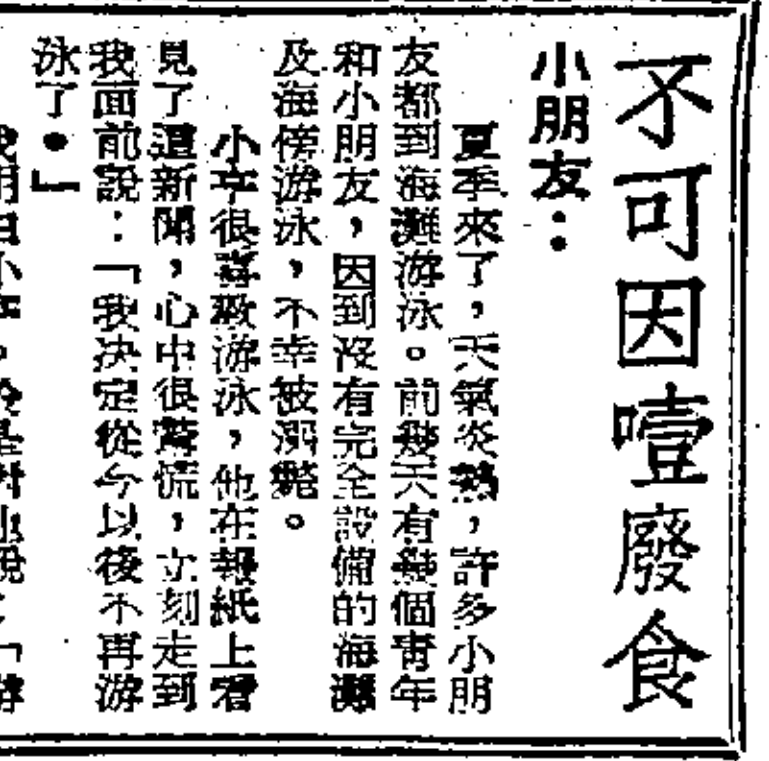 不可因噎廢食
小朋友：
夏季來了，天氣炎熱，許多小朋
友都到海灘游泳。前幾天有幾個青年
和小朋友，因到沒有完全設備的海灘
及海傍游泳，不幸被溺斃。
小亭很喜歡游泳，他在報紙上看
見了這新聞，心中很驚慌，立刻走到
我面前說：「我決定從今以後不再游
泳了。」